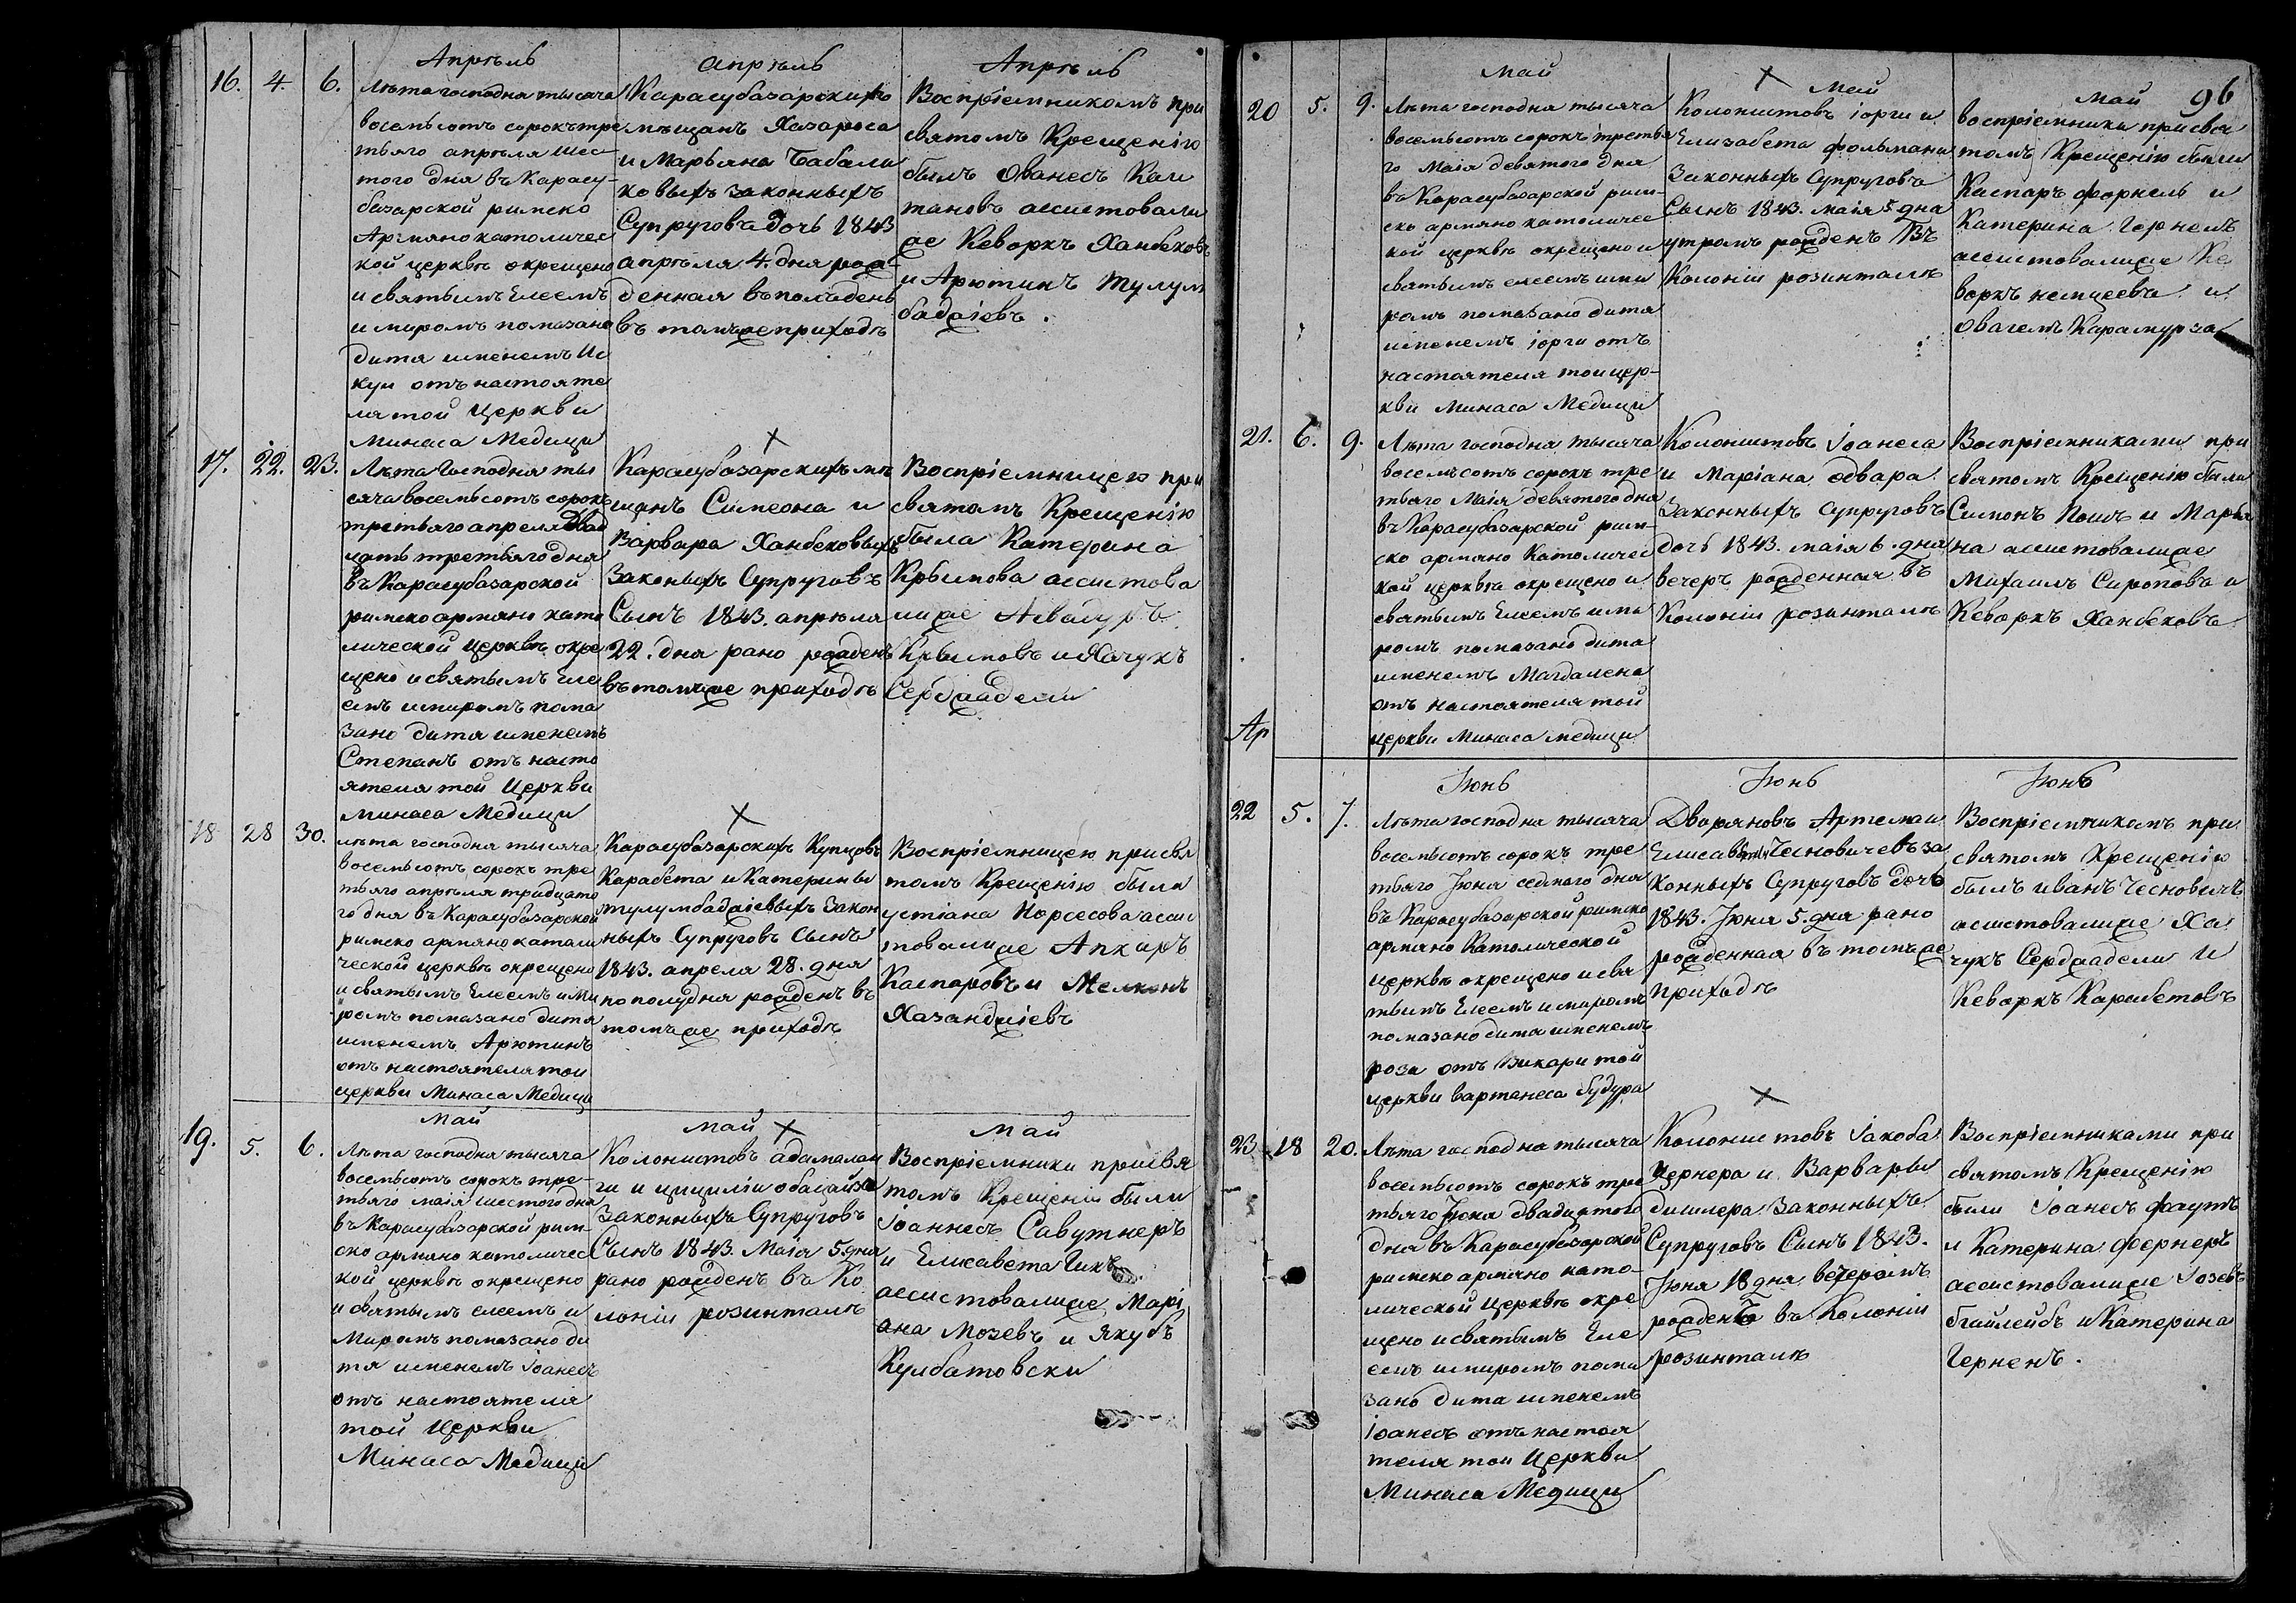 Апрѣль
16. 4. 6. Лѣта господня тысяча
восемьсотъ сорокъ тре
тьяго апрѣля шес-
того дня въ Карасу-
базарской римско
Армянокатоличес
кой церквѣ окрещено
и святымъ Елеемъ
и миромъ помазано
дитя именемъ Ис
куи отъ настояте
ля той Церкви
Минаса Медици
Апрѣль
Карасубазарскихъ
мѣщанъ Хазароса
и Марьяна Бабали
ковыхъ законныхъ
Супруговъ дочь 1843
апрѣля 4. дня рож-
денная въ полъдень
въ томъже приходѣ
Апрѣль
Воспріемникомъ при
святомъ Крещеніи
былъ Ованесъ Кап
тановъ ассистовали
же Кеворкъ Ханбековъ
и Арютинъ Тулум
баджіевъ.
17. 22. 23. Лѣта Господня ты
сяча восемьсотъ сорокъ
третьяго апреля Двад
цать третьяго дня
въ Карасубазарской
римскоармяно като
лической Церквѣ окре
щено и святымъ Еле
емъ и миромъ пома
зано дитя именемъ
Степанъ отъ насто
ятеля той Церкви
Минаса Медици
Карасубазарскихъ мѣ
щанъ Симеона и
Варвара Ханбековыхъ
Законыхъ Супруговъ
Сынъ 1843. апрѣля
22. дня рано рожденъ
въ томъже приходѣ
Воспріемницею при
святомъ Крещенію
была Катерина
Крымова ассистова
лиже Асвадуръ
Крымовъ и Хачукъ
Серджадели
18 28 30. лѣта господня тысяча
восемьсотъ сорокъ тре
тьяго апрѣля традцато
го дня въ Карасубазарской
римско армянокатоли
ческой церквѣ окрещено
и святымъ Елеемъ и Ми
ромъ помазано дитя
именемъ Арютинъ
отъ настоятеля тои
церкви Минаса Медици
Карасубазарскихъ Купцовъ
Карабета и Катерины
тулумбаджіевыхъ Закон
ныхъ Супруговъ Сынъ
1843. апреля 28. дня
по полудня рожденъ въ
томъже приходѣ
Воспріемницею при свя
томъ Крещенію была
устіана Норсесова асис
товалиже Апкаръ
Каспаровъ и Мелконъ
Хазанджіевъ
Май
19. 5. 6. Лѣта господня тысяча
восемьсотъ сорокъ тре-
тьяго маія шестого дня
въ Карасубазарской рим-
ско армяно католичес
кой церквѣ окрещено
и святымъ елеемъ и
Миромъ помазано ди
тя именемъ Іоанесъ
отъ настоятеля
той Церкви
Минаса Медици
Май
Колонистовъ
Законныхъ Супруговъ
Сынъ 1843. Маія 5. дня
рано рожденъ въ Ко
лоніи розинталъ
Май
Воспріемники при свя
томъ Крещеніи были
Іоаннесъ Савутнеръ
и Елисавета Гикъ
ассистовалиже Марі
ана Мозевъ и Якубъ
Кулбатовски
96
Май
20 5. 9. Лѣта господня тысяча
восемьсотъ сорокъ третья
го Маія девятого дня
въ Карасубазарской рим-
ско армяно католичес
кой церквѣ окрещено и
святымъ елеемъ и ми
ромъ помазано дитя
именемъ іорги отъ
настоятеля тои цер-
кви Минаса Медици
Май
Колонистовъ іорги и
Елизабета фольмана
Законныхъ Супруговъ
Сынъ 1843. маія 5. дня
утромъ рожденъ въ
Колоніи розинталъ
Май
воспріемники при свя
томъ Крещенію были
Каспаръ форкель и
Катерина Гернелъ
ассистовалиже Ке
воркъ немцевъ и
Овагемъ Карамурза
21. 6. 9. Лѣта господня тысяча
восемьсотъ сорокъ тре
тьяго Маія девятого дня
въ Карасубазарской рим-
ско армяно Католичес
кой церквѣ окрещено и
святымъ Елеемъ и ми
ромъ помазано дитя
именемъ Магдалена
отъ настоятеля той
церкви Минаса медици
Колонистовъ Іоанеса
и Маріана одвара
Законныхъ Супруговъ
дочь 1843. маія 6. дня
вечеръ рожденная въ
Колоніи розинталъ
Воспріемниками при
святомъ Крещенію была
Симонъ Поилъ и Марья
на ассистовалиже
Михаилъ Сироповъ и
Кеворкъ Ханбековъ
Ар
Іюнь
22 5. 7. Лѣта господня тысяча
восемьсотъ сорокъ тре
тьяго Іюня седмого дня
въ Карасубазарской римско
армяно Католической
церквѣ окрещено и свя
тымъ Елеемъ и миромъ
помазано дитя именемъ
роза отъ Викари той
церкви вартанеса будура
Іюнь
Дворяновъ Артемаи
Елисаветы Чесновичевъ за
конныхъ Супруговъ дочь
1843. Іюня 5. дня рано
рожденная въ томъже
приходѣ
Іюнь
Воспріемникомъ при
святомъ Крещенію
былъ иванъ Чесновичъ
асистовалиже Ха
чукъ Серджадели и
Кеворкъ Карабетовъ
23 18 20. Лѣта господня тысяча
восемьсотъ сорокъ тре
тьяго Іюня двадцатого
дня въ Карасубазарской
римско армяно като-
лической Церквѣ окре
щено и святымъ Еле
емъ и миромъ пома
зано дитя именемъ
Іоанесъ отъ настоя
теля тои Церкви
Минаса Медици
Колонистовъ Іакоба
Чернера и Варвары
дишлера Законныхъ
Супруговъ Сынъ 1843.
Іюня 18 дня вечеромъ
рожденъ въ Колоніи
розинталъ
Воспріемниками при
святомъ Крещенію
были Іоанесъ фаутъ
и Катерина фернеръ
ассистовалиже Іозевъ
бгайлейбъ и Катерина
Герненъ.